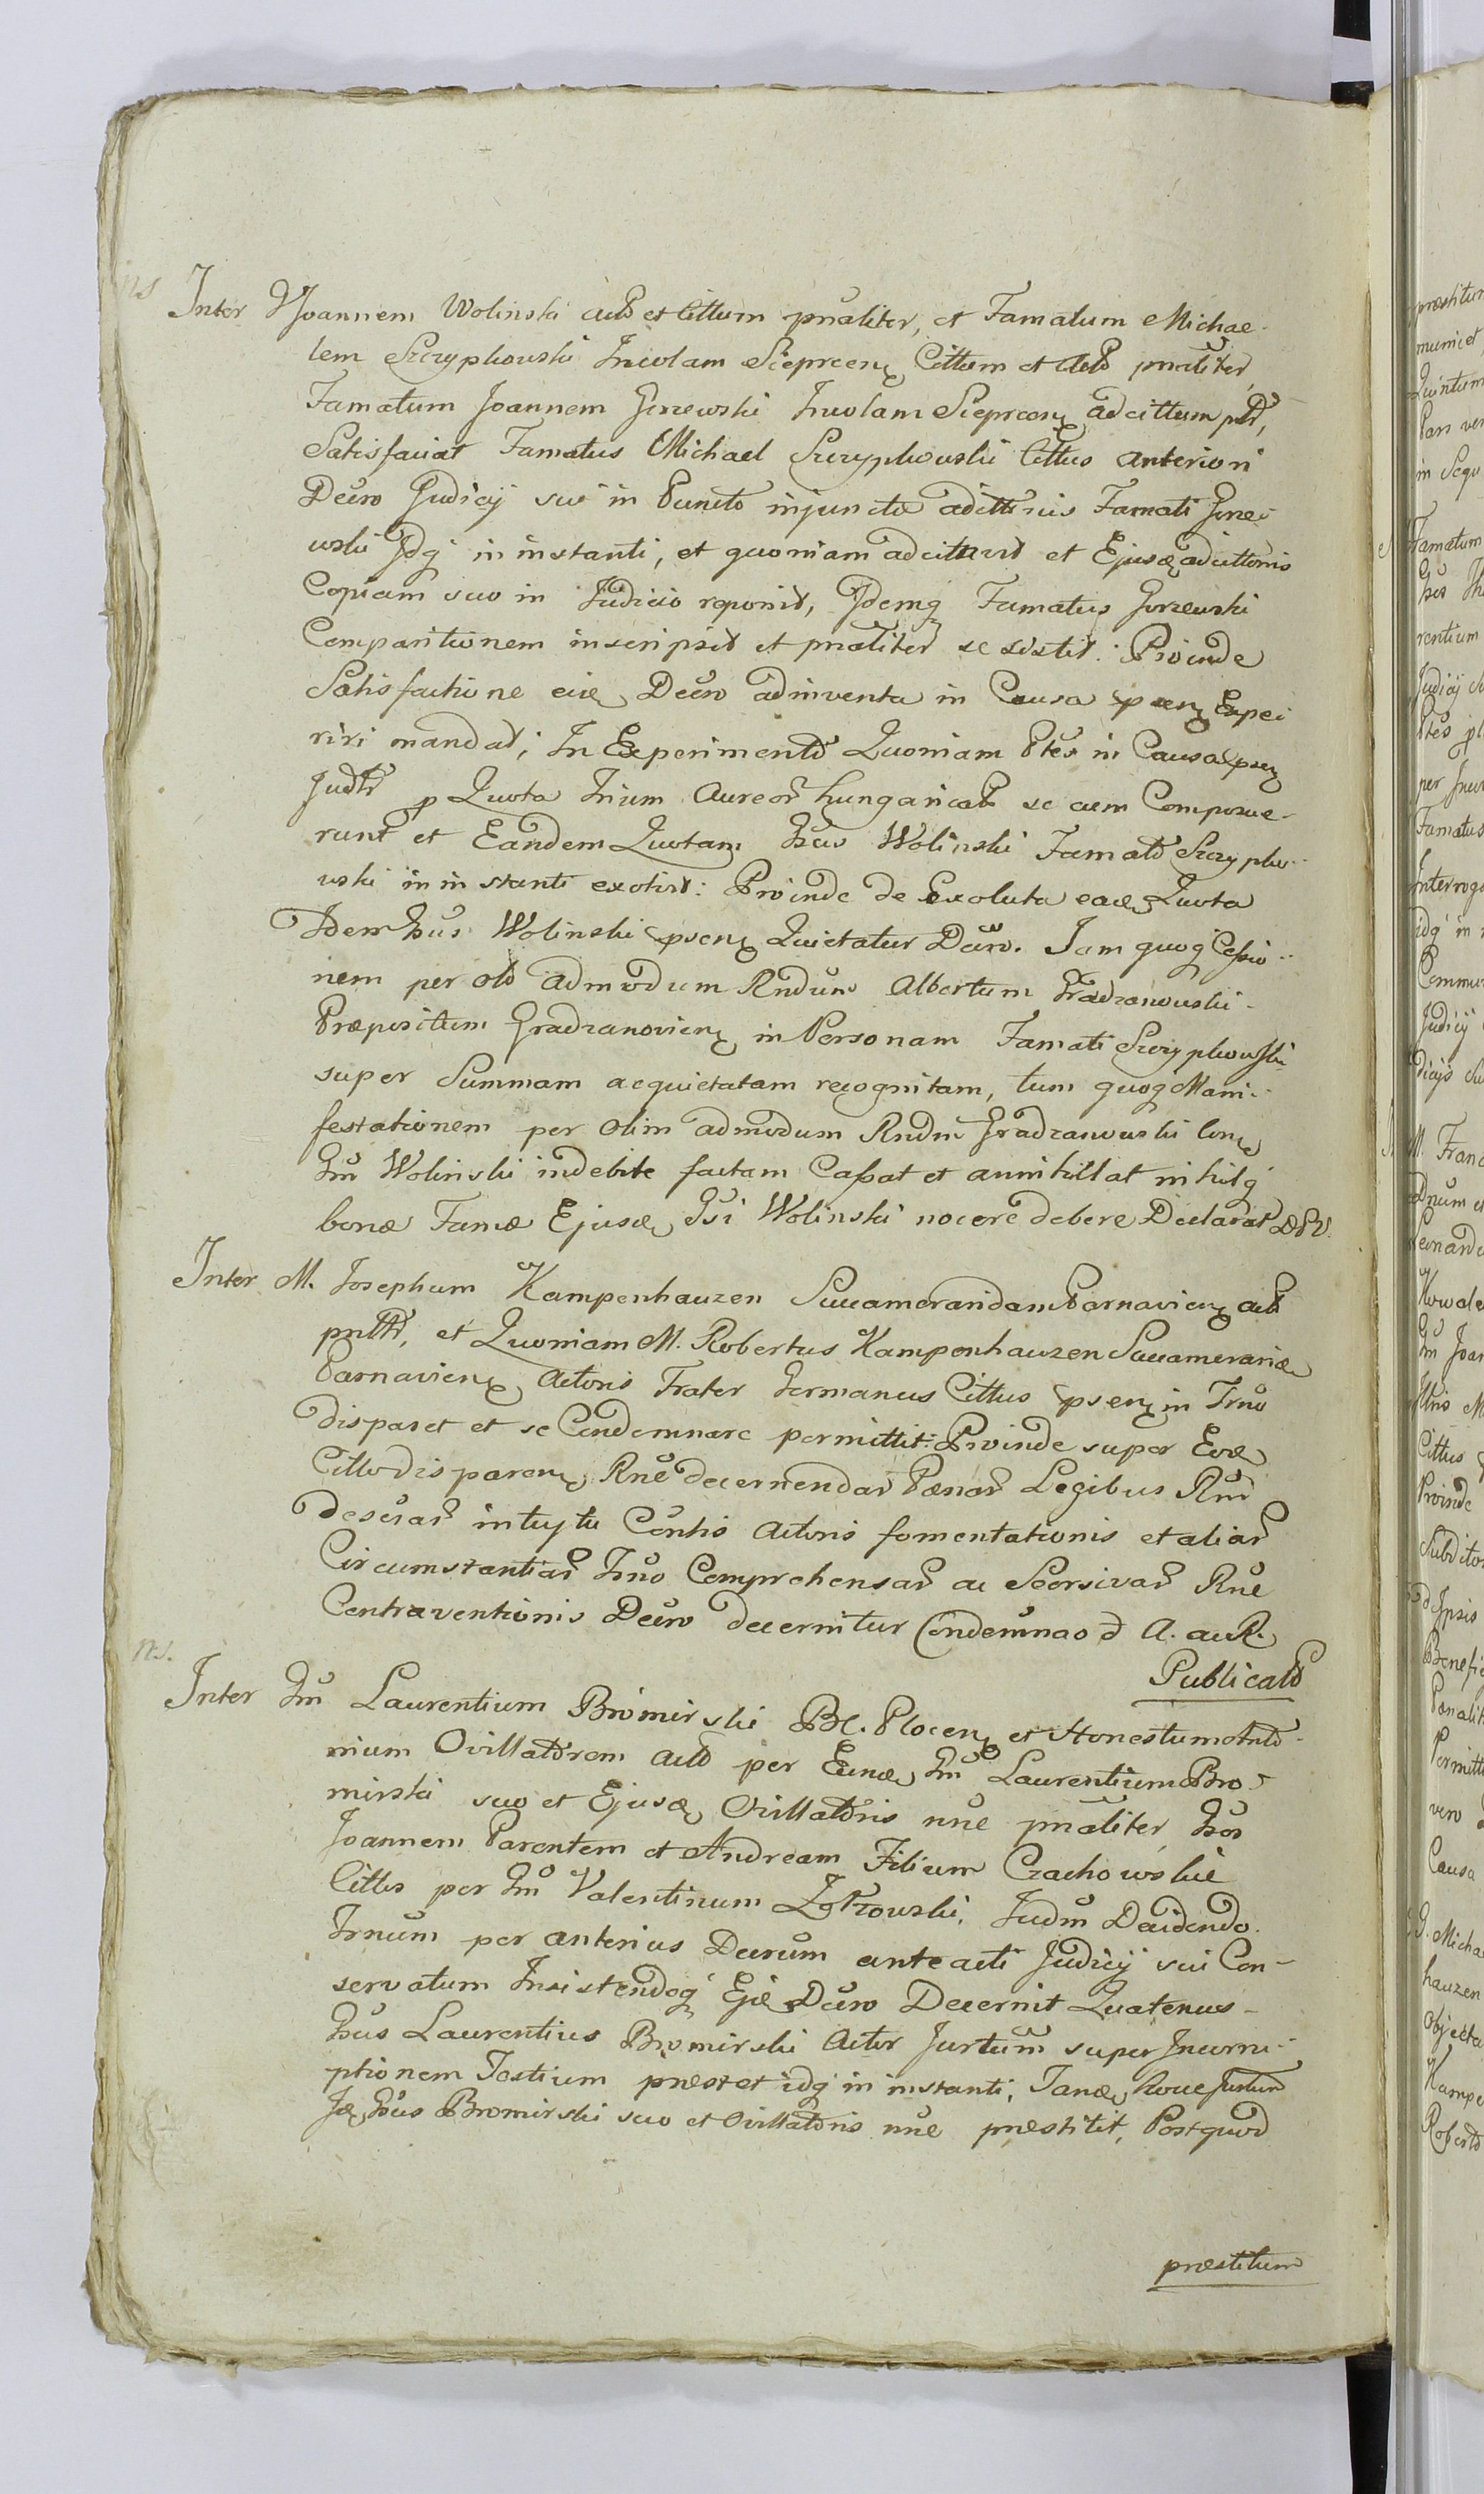 ns
Inter G Joannem Wolinski actō et cittum pnāliter, et Famatum Michae-
lem Szczypkowski Incolam Sieprcenʒ Cittum et actō pnāliter
Famatum Joannem Gorzewski Incolam Sieprcenʒ adcittum ptr,
Satisfaciat Famatus Michael Szczypkowski Cittus anteriori
Decro Judicij sui in Puncto injunctæ adcittnis Famati Gorze-
wski Idq in instanti, et quoniam adcittavit et Ejusdæ adcittonis
Copiam suo in Judicio reponit, Idemq Famatus Gorzewski
Comparitionem inscripsit et pnāliter se sistit: Proinde
Satisfactione eidæ Decro adinventa in Causa psenʒ Expe-
riri mandat; In Experimento Quoniam Ptes in Causa psenʒ
Judtr p Quota Trium Aureor hungaricalr se cum Composue-
runt et Eandem Quotam Gsus Wolinski Famato Szczypko-
wski in instanti exolvit: Proinde de Exoluta eadæ Quota
Idem Gsus Wolinski psenʒ Quietatur Decro. Jam quoq Cessio-
nem per olō admodum Rndum Albertum Gradzanowski
Præpositum Gradzanovienʒ in Personam Famati Szczypkowski
super Summam acquietatam recognitam, tum quoq Mani-
festationem per olim admodum Rndm Gradzanowski Conæ
Gm Wolinski indebite factam Cassat et annihillat nihilq
bonæ Famæ Ejusdæ Gsi Wolinski nocere debere Declarat DPV.
Inter M. Josephum Kampenhauzen Succamerandam Parnavienʒ actō
pnlttr, et Quoniam M. Robertus Kampenhauzen Succamerariæ
Parnavienʒ Actoris Frater Germanus Cittus psenʒ in Trno
disparet et se Condemnare permittit: Proinde super Eodæ
Citto disparenʒ Rne decernendar Pænar Legibus Rni
descrar intuytu Contis Actoris fomentationis et aliar
Circumstantiar Trno Comprehensar ac Seorsivar Rne
Contraventionis Decro decernitur Condemnao d A. ac R.
Publicatō
ns.
Inter Gm Laurentium Bromirski Bt. Plocenʒ et Honestum Anto-
nium Ovillatorem actō per Eundæ Gm Laurentium Bro-
mirski suo et Ejusdæ Ovillatoris nne pnāliter Gsos
Joannem Parentem et Andream Filium Czachowskie
Cittos per Gm Valentinum Zołtowski. Judm Decidendo
Trnum per anterius Decrum anteacti Judicij sui Con-
servatum Insistendoq Ejdæ Decro Decernit Quatenus
Gsus Laurentius Bromirski Actor Jurtum super Incorru-
ptionem Testium præstet idq in instanti, Tandæ hocce Jurtum
Idæ Gsus Bromirski suo et Ovillatoris nne præstitit, Postquod
præstitum